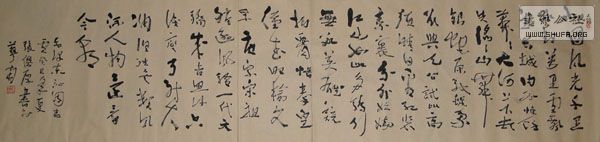 北国风光千里
冰封万里雪飘
望长城内外惟余
莽莽大河上下顿
失滔滔山舞
银蛇原驰蜡象
欲与天公试比高
须晴日看红装
素裹分外妖娆
江山如此多娇引
无数英雄竞
折腰惜秦皇
汉武略输文
采唐宗宋祖
稍逊风骚一代天
骄成吉思汗只
识弯弓射大雕
俱往矣数风
流人物还看
今朝
毛泽东沁园春
雪
WWW.SHUFA.ORG